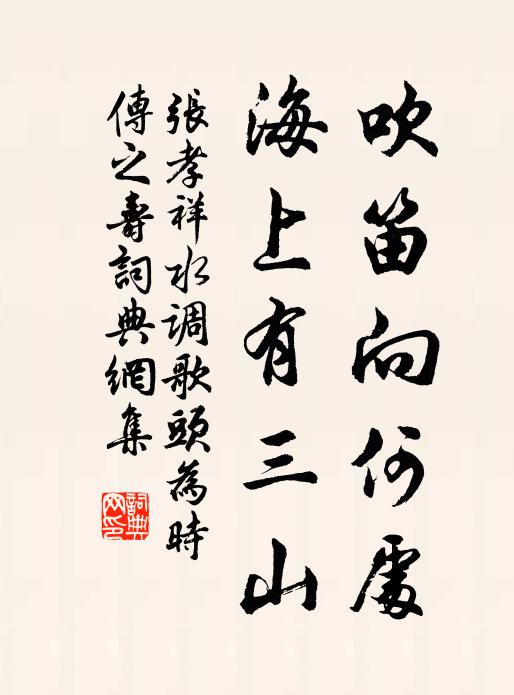 吹笛向何處
海上有三山
張孝祥水调歌頭為時
傳之壽詞典網集
詞典網印